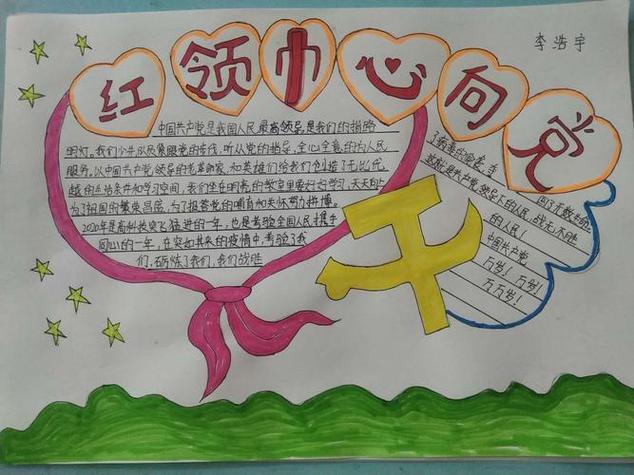 红领巾心向党
李浩宇
中国共产党是我国人民最高领导,是我们的指路
明灯。我们少先队员紧跟党的步伐,听从党的指导,全心全意的为人民
服务,以中国共产党领导的先革前家,和英雄们给我们创造了无比优
越的生活条件和学习空间,我们坐在明亮的教室里要好好学习,天天向上
为了祖国的繁荣昌盛,为了报答党的哺育和关怀努力拼搏。
2020年是高州快突飞猛进的一年,也是考验全国人民携手
同心的一年,在突如其来的疫情中,考验了我
们,砺炼了我们,我们战胜
了病毒的
回了无数生命
就是共产党领导下的人民,战无不胜
的人民!
中国共产党
万岁!万岁!
万万岁!